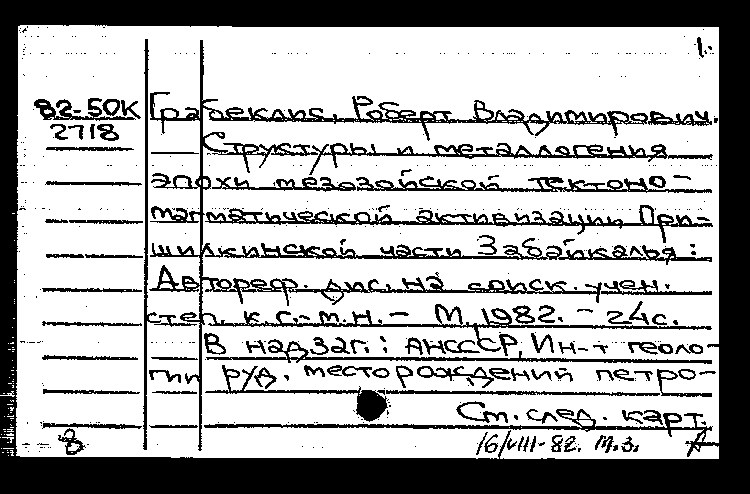 1.
82-50К Грабеклис, Роберт Владимирович.
2718
Структуры и металлогения
эпохи мезозойской тектоно-
магматической активизации При-
шилкинской части Забайкалья:
Автореф. дис. на соиск. учен.
степ. к.г.-м.н. - М, 1982. - 24с.
В надзаг.: АНСССР, Ин-т геоло-
гии руд. месторождений петро-
Ст. след. карт.
8 16/VIII-82. М.З. А